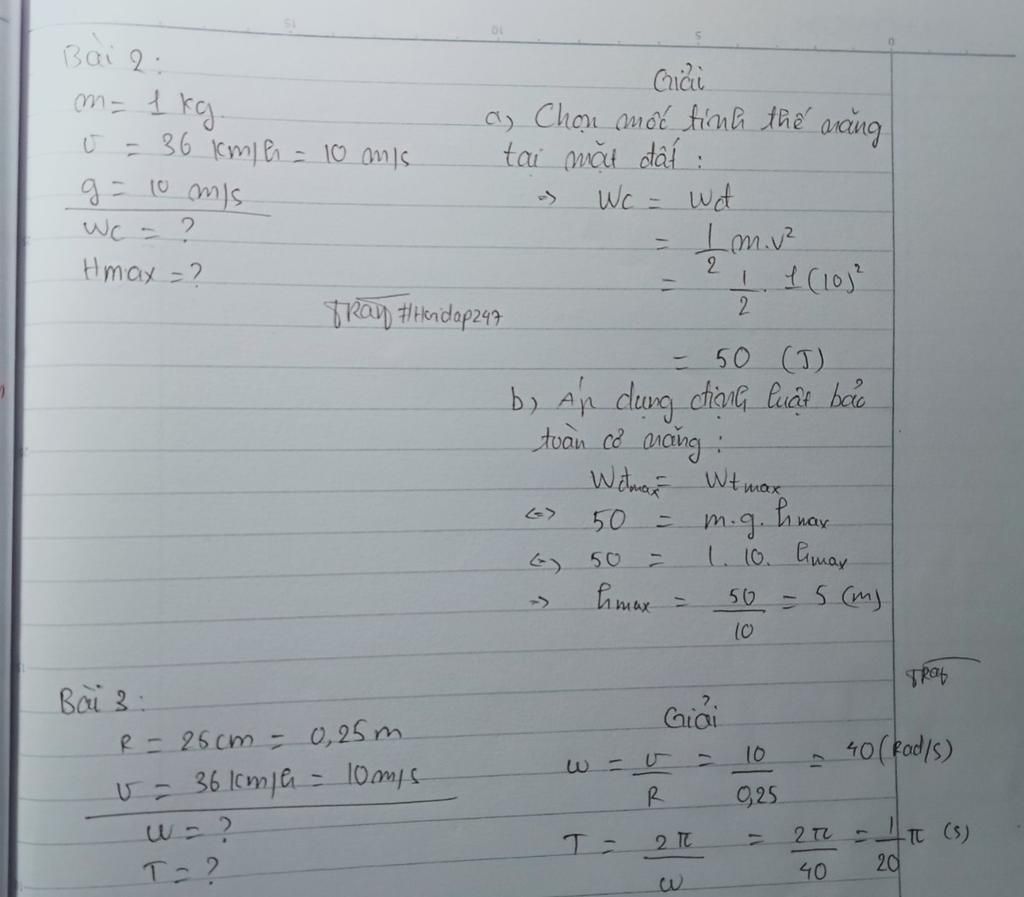 Bài 2:
m = 1 kg
v = 36 km/h = 10 m/s
g = 10 m/s
Wc = ?
Hmax = ?
#Hoidap247
Giải
a) Chọn mốc tính thế năng
tại mặt đất :
=> Wc = Wđ
= 1/2 m.v²
= 1/2 . 1(10)²
= 50 (J)
b) Áp dụng định luật bảo
toàn cơ năng :
Wđmax = Wtmax
<=> 50 = m.g.hmax
<=> 50 = 1.10.hmax
=> hmax = 50/10 = 5 (m)
Bài 3:
R = 25cm = 0,25m
v = 36 km/h = 10m/s
ω = ?
T = ?
Giải
ω = v/R = 10/0,25 = 40 (Rad/s)
T = 2π/ω = 2π/40 = 1/20 π (s)
15 10 5 0